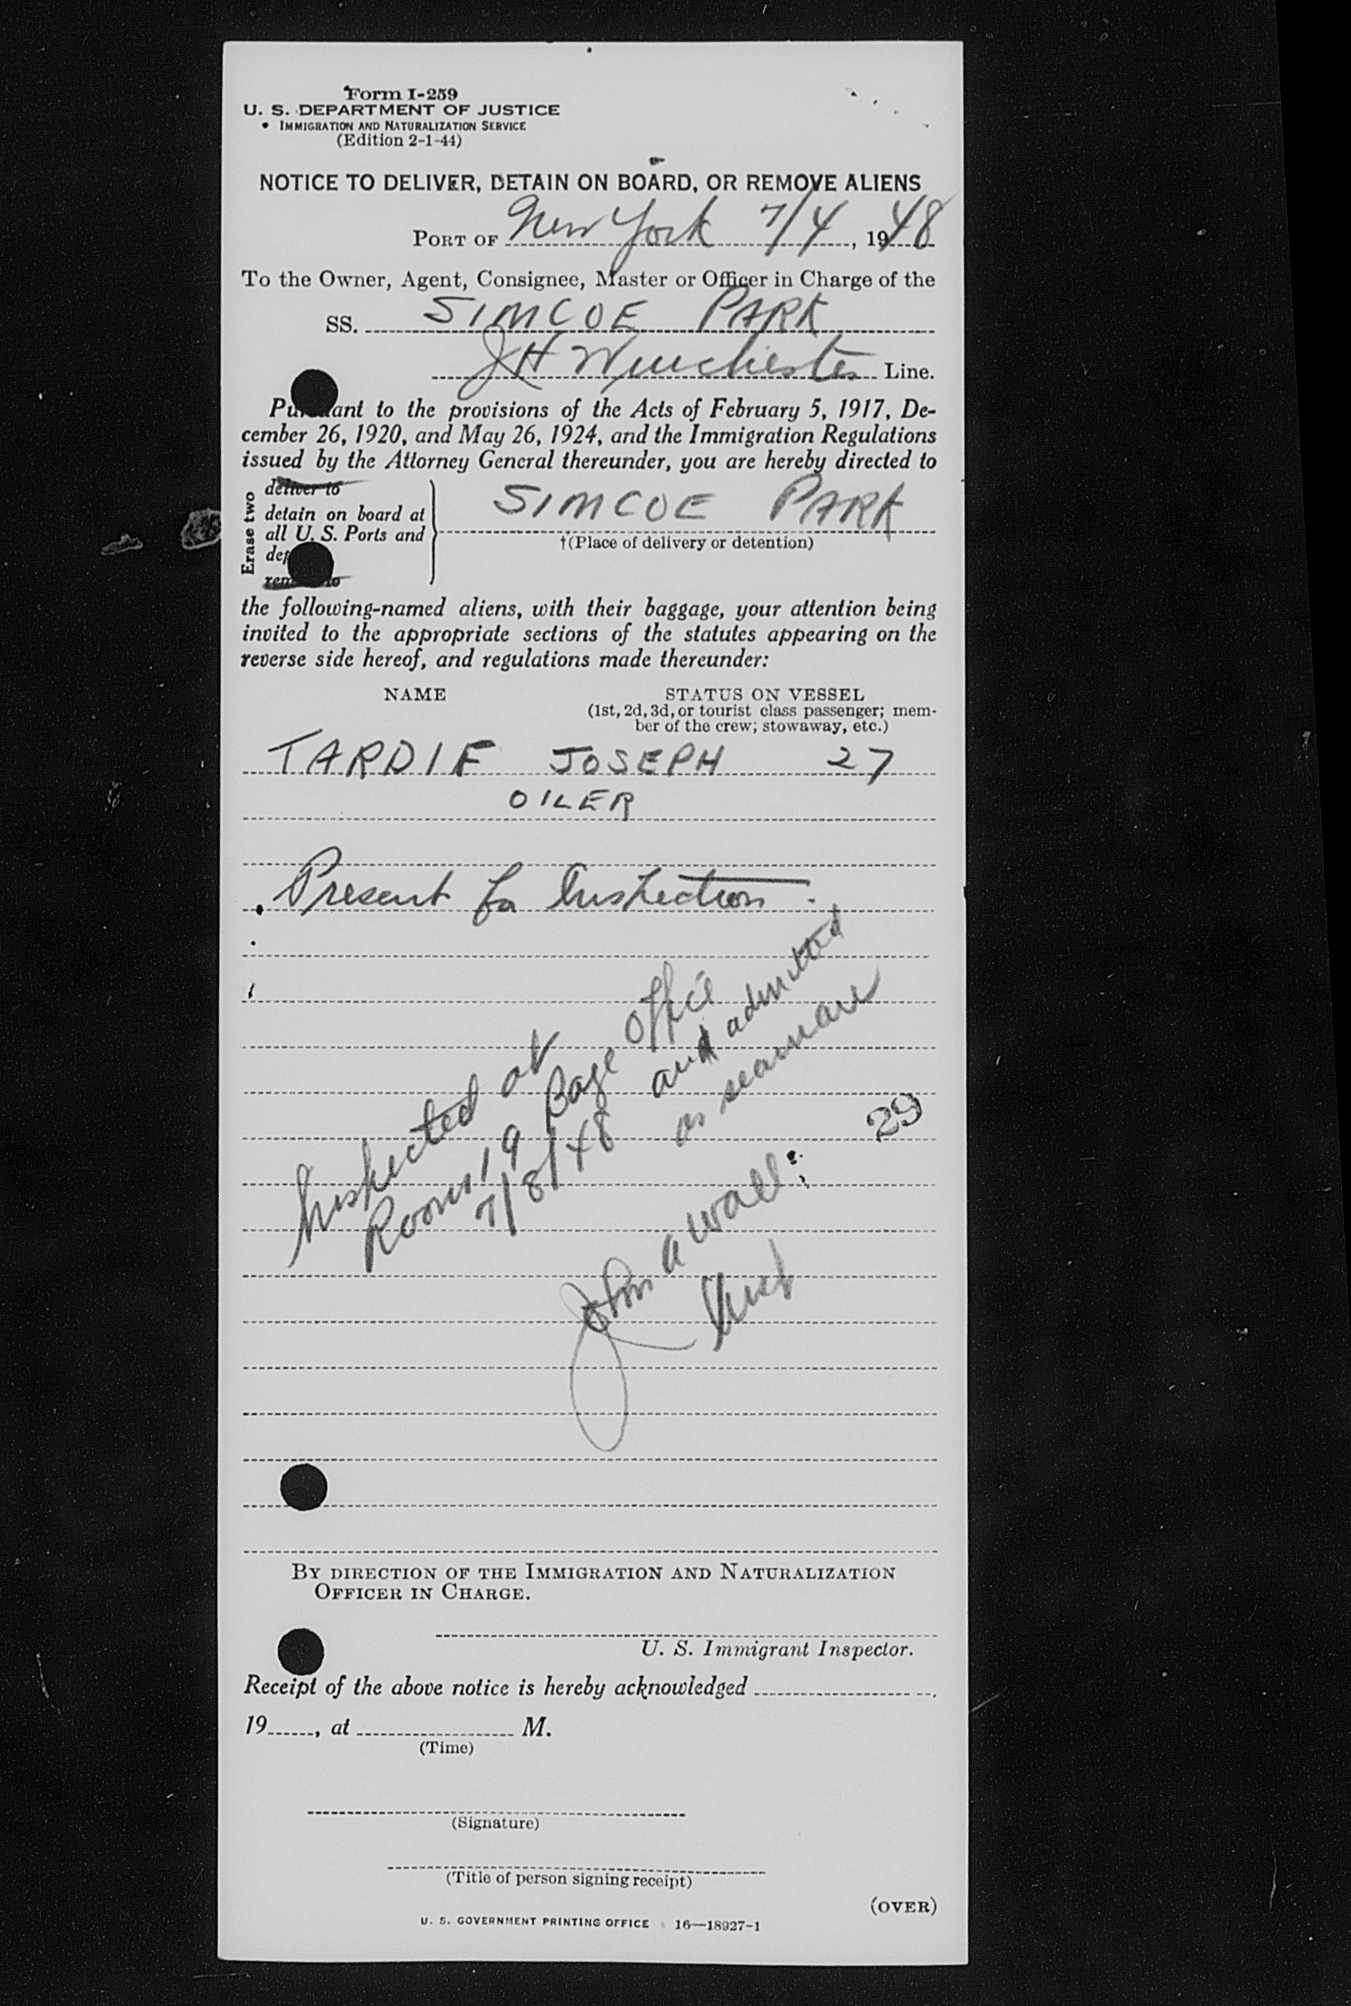 Form I-259
U. S. DEPARTMENT OF JUSTICE
IMMIGRATION AND NATURALIZATION SERVICE
(Edition 2-1-44)
NOTICE TO DELIVER, DETAIN ON BOARD, OR REMOVE ALIENS
PORT OF New York 7/4, 1948
To the Owner, Agent, Consignee, Master or Officer in Charge of the
SS. SIMCOE PARK
J H Winchester Line.
Pursuant to the provisions of the Acts of February 5, 1917, De-
cember 26, 1920, and May 26, 1924, and the Immigration Regulations
issued by the Attorney General thereunder, you are hereby directed to
Erase two
deliver to
detain on board at
all U. S. Ports and
SIMCOE PARK
†(Place of delivery or detention)
the following-named aliens, with their baggage, your attention being
invited to the appropriate sections of the statutes appearing on the
reverse side hereof, and regulations made thereunder:
NAME STATUS ON VESSEL
(1st, 2d, 3d, or tourist class passenger; mem-
ber of the crew; stowaway, etc.)
TARDIF JOSEPH 27
OILER
Present for Inspection.
Inspected at
Room 19 Bage Office
7/8/48 and admitted
as seaman
29
John A Wall
Insp
BY DIRECTION OF THE IMMIGRATION AND NATURALIZATION
OFFICER IN CHARGE.
U. S. Immigrant Inspector.
Receipt of the above notice is hereby acknowledged
19, at M.
(Time)
(Signature)
(Title of person signing receipt)
(OVER)
U. S. GOVERNMENT PRINTING OFFICE 16—18927-1